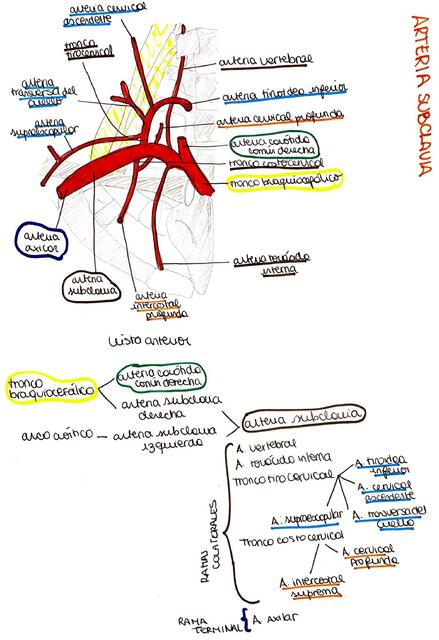 ARTERIA SUBCLAVIA
arteria cervical
ascendente
tronco
tirocervical
arteria
transversa del
cuello
arteria
supraescapular
arteria vertebral
arteria tiroidea inferior
arteria cervical profunda
arteria carótida
común derecha
tronco costocervical
tronco braquiocefálico
arteria
axilar
arteria
subclavia
arteria
intercostal
profunda
arteria torácica
interna
Vista anterior
tronco
braquiocefálico
arteria carótida
común derecha
arteria subclavia
derecha
arteria subclavia
arco aórtico — arteria subclavia
izquierda
RAMAS
COLATERALES
A. vertebral
A. torácica interna
Tronco tiro cervical
A. tiroidea
inferior
A. cervical
ascendente
A. transversa del
cuello
A. supraescapular
Tronco costocervical
A. cervical
profunda
A. intercostal
suprema
RAMA
TERMINAL
A. axilar